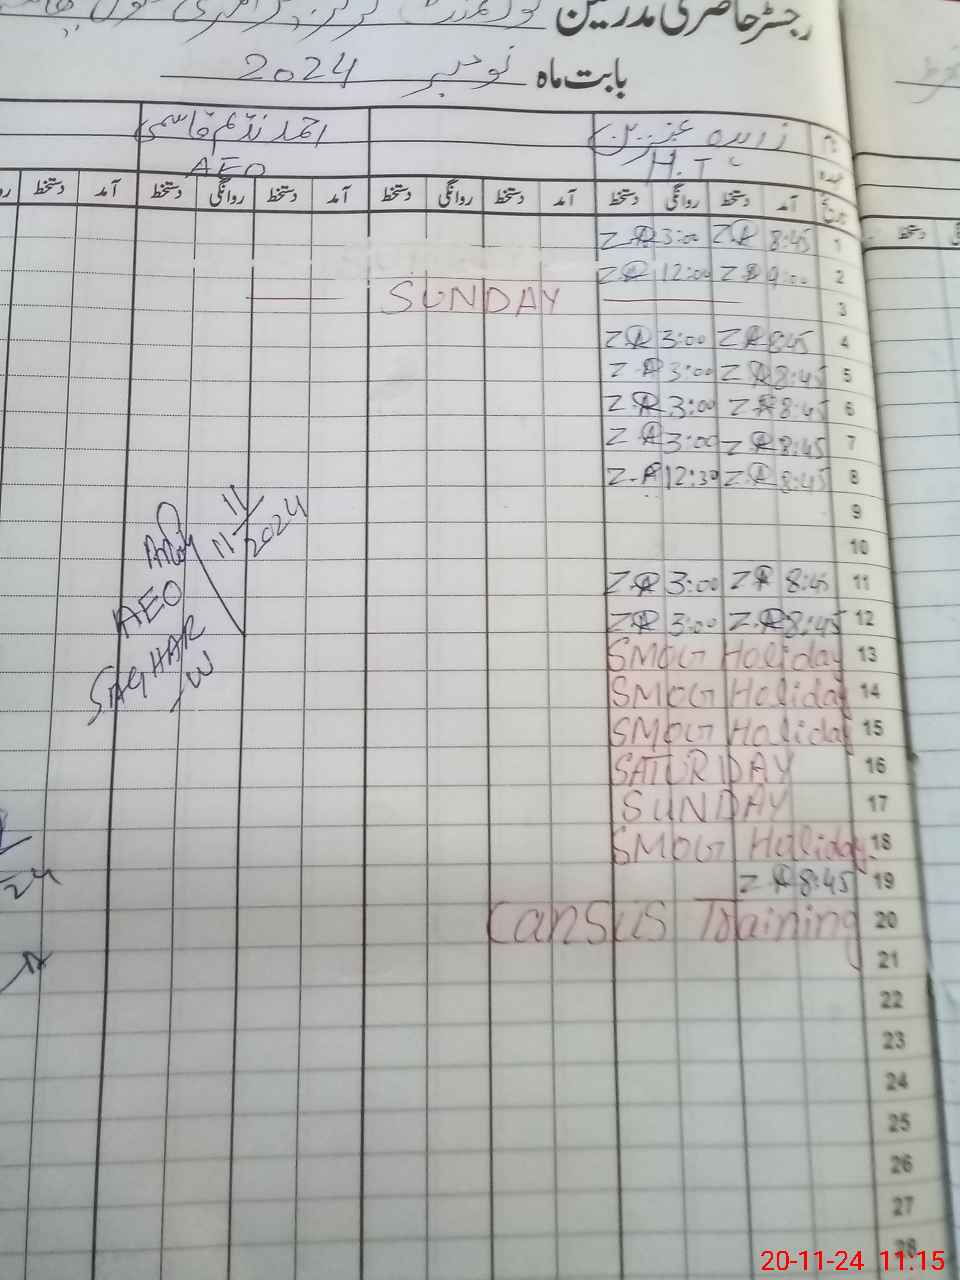 رجسٹر حاضری مدرسین
بابت ماہ نومبر 2024
نام زبیدہ عنبرین احمد ندیم قاسمی
عہدہ H.T AEO
تاریخ آمد دستخط روانگی دستخط آمد دستخط روانگی دستخط آمد دستخط روانگی دستخط آمد دستخط
1 8:45 ZA 3:00 ZA
2 9:00 ZA 12:00 ZA
3 SUNDAY
4 8:45 ZA 3:00 ZA
5 8:45 ZA 3:00 Z.A
6 8:45 ZA 3:00 ZA
7 8:45 ZA 3:00 ZA
8 8:45 ZA 12:30 Z.A
9
10
11 8:45 ZA 3:00 ZA
12 8:45 Z.A 3:00 ZA
13 SMOG Holiday
14 SMOG Holiday
15 SMOG Holiday
16 SATURDAY
17 SUNDAY
18 SMOG Holiday
19 8:45 ZA
20 Cansus Training
21
22
23
24
25
26
27
28
11/11/2024
AEO
SAGHAR
W
24
دستخط
20-11-24 11:15